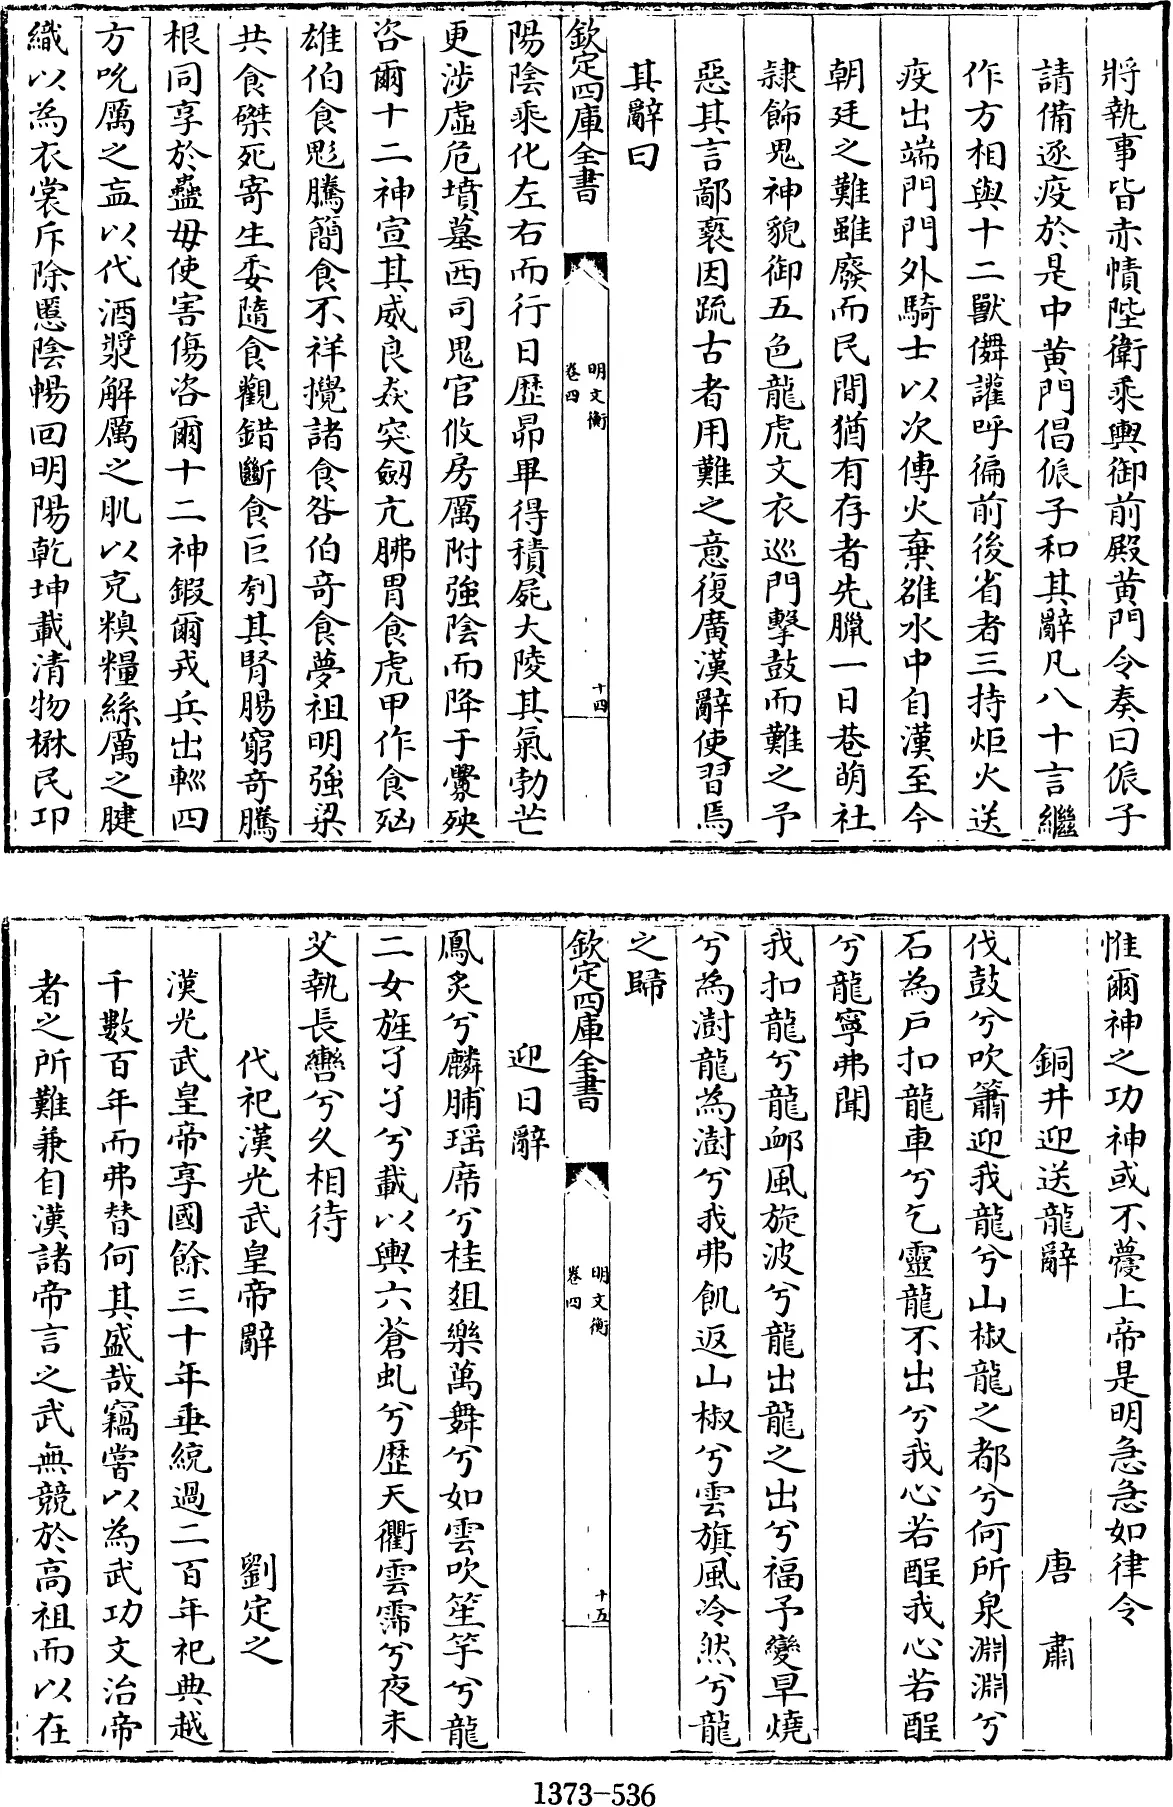 將執事皆赤幘陛衛乘輿御前殿黄門令奏曰侲子
請備逐疫於是中黄門倡侲子和其辭凡八十言繼
作方相與十二獸儛讙呼徧前後省者三持炬火送
疫出端門門外騎士以次傳火棄雒水中自漢至今
朝廷之難雖廢而民間猶有存者先臘一日巷萌社
隷飾鬼神貌御五色龍虎文衣巡門擊鼓而難之予
惡其言鄙褻因疏古者用難之意復廣漢辭使習焉
其辭曰
欽定四庫全書
明文衡
卷四
十四
陽陰乘化左右而行日歴昴畢得積屍大陵其氣勃芒
更渉虛危墳墓西司鬼官攸房厲附強陰而降于釁殃
咨爾十二神宣其威良猋突劒亢胇胃食虎甲作食㐫
雄伯食魅騰簡食不祥攪諸食咎伯奇食夢祖明強梁
共食磔死寄生委隨食觀錯斷食巨刳其腎腸窮奇騰
根同享於蠱毋使害傷咨爾十二神鍜爾戎兵出輧四
方吮厲之衁以代酒漿解厲之肌以克糗糧絲厲之腱
織以為衣裳斥除慝陰暢回明陽乾坤載清物楙民卭
惟爾神之功神或不蘉上帝是明急急如律令
銅井迎送龍辭 唐肅
伐鼓兮吹簫迎我龍兮山椒龍之都兮何所泉淵淵兮
石為戶扣龍車兮乞靈龍不出兮我心若酲我心若酲
兮龍寧弗聞
我扣龍兮龍䘏風旋波兮龍出龍之出兮福予變旱燒
兮為澍龍為澍兮我弗飢返山椒兮雲旗風冷然兮龍
之歸
欽定四庫全書
明文衡
卷四
十五
迎日辭
鳳炙兮麟脯瑶席兮桂俎樂萬舞兮如雲吹笙竽兮龍
二女旌孑孑兮載以輿六蒼虬兮歴天衢雲霈兮夜未
艾執長轡兮久相待
代祀漢光武皇帝辭 劉定之
漢光武皇帝享國餘三十年垂統過二百年祀典越
千數百年而弗替何其盛哉竊嘗以為武功文治帝
者之所難兼自漢諸帝言之武無競於高祖而以在
1373-536